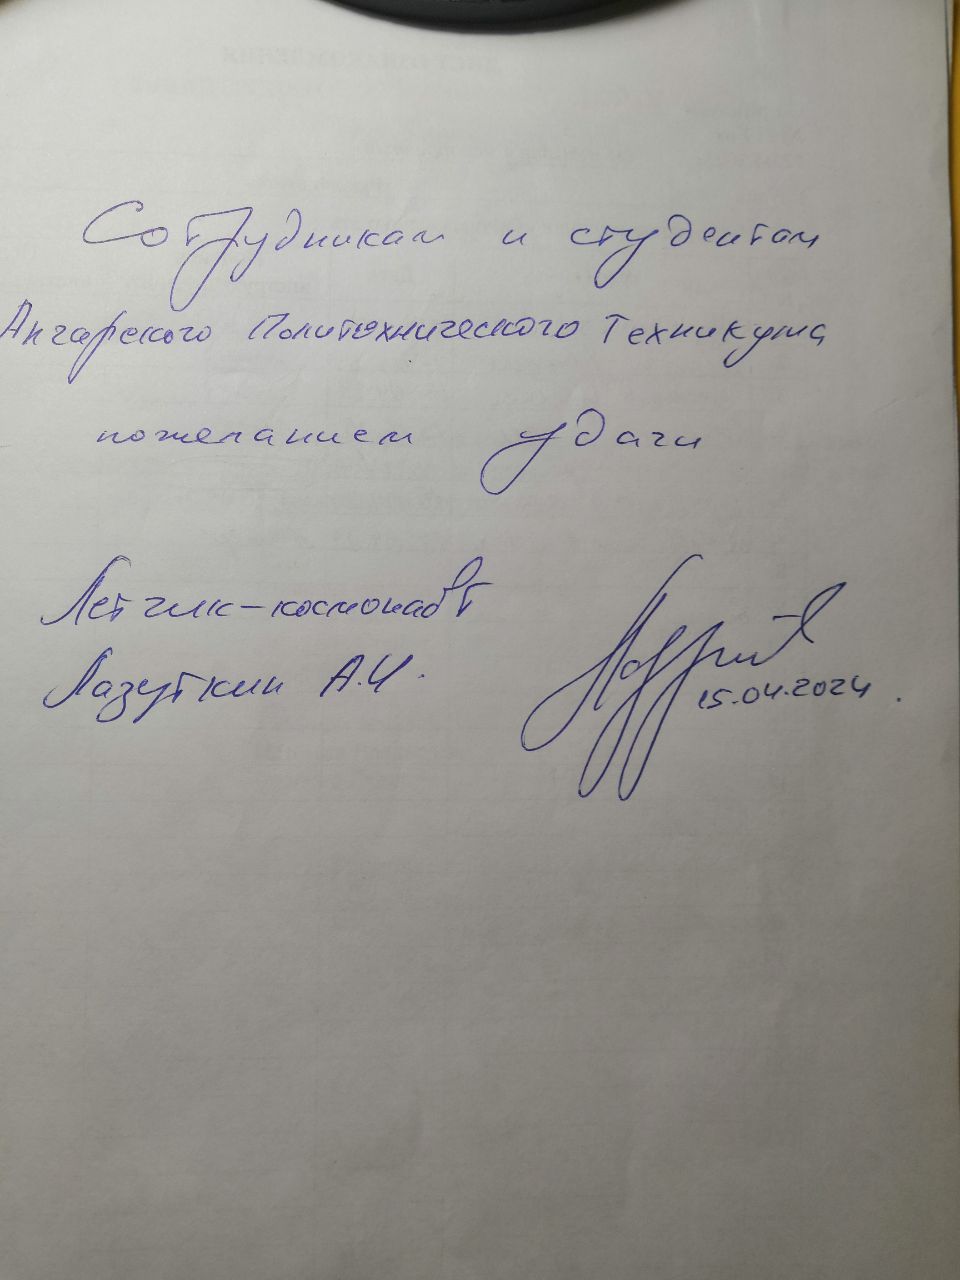 Сотрудникам и студентам
Ангарского Политехнического Техникума
пожеланием удачи
Летчик-космонавт
Лазуткин А.И.
15.04.2024.